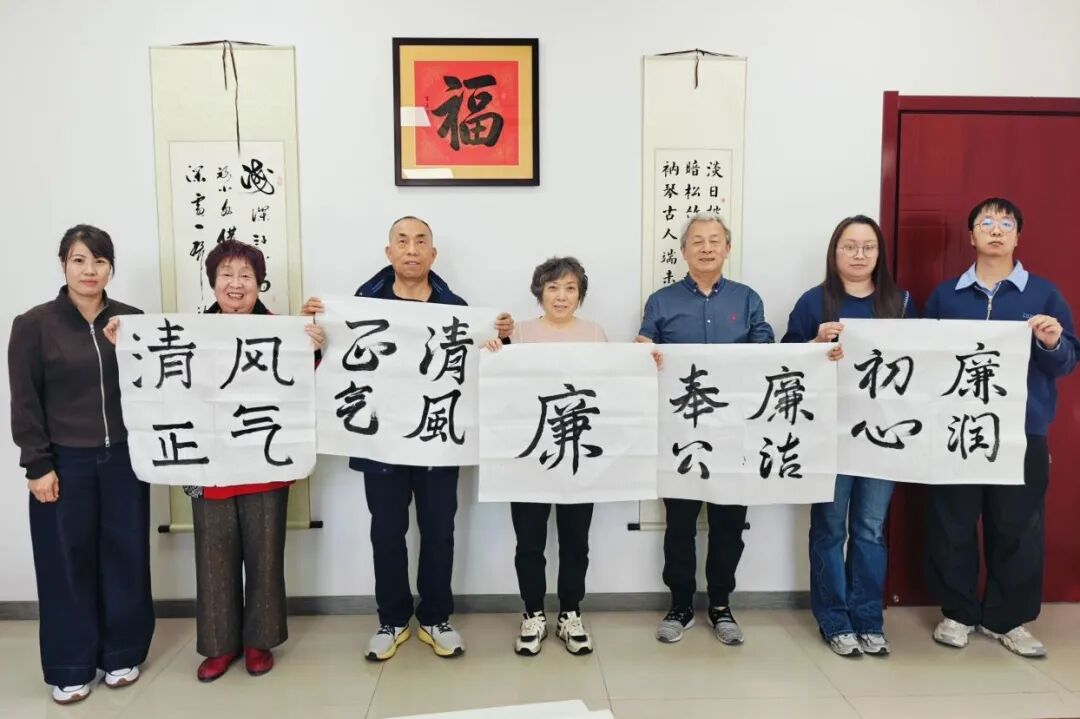 福
淡日
暗松竹
衲琴古人端未
风气
清正
清風
正氣
廉
廉洁
奉公
廉润
初心